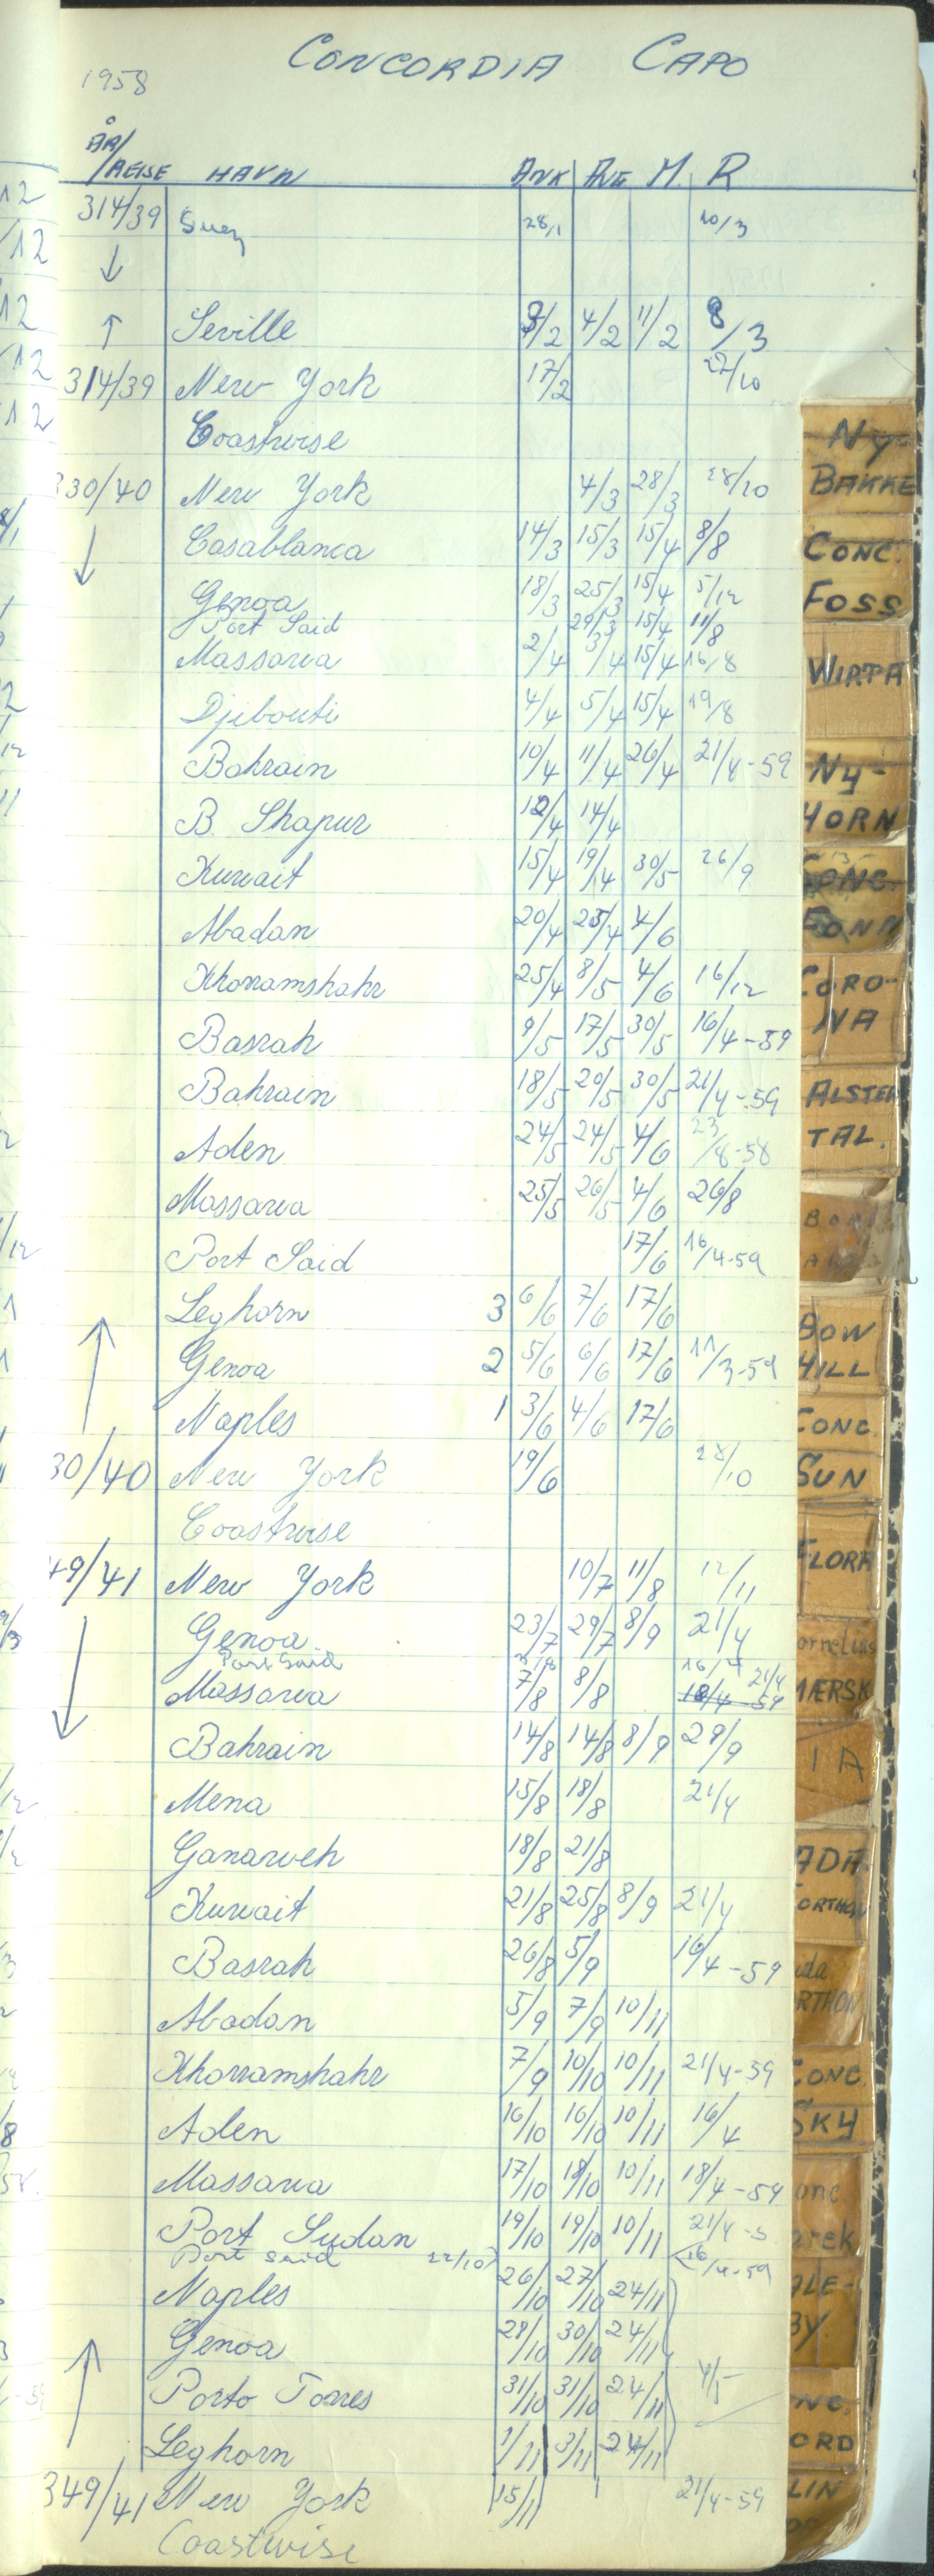 CONCORDIA CAPO
1958
ÅR/REISE HAVN ANK AVG M. R
314/39 Suez 28/1 10/3
↓
↑ Seville 3/2 4/2 11/2 8/3
314/39 New York 17/2 27/10
Coastwise
330/40 New York 4/3 28/3 28/10
↓ Casablanca 14/3 15/3 15/4 8/8
Genoa 18/3 25/3 15/4 5/12
Port Said 29/3 15/4 11/8
Massawa 2/4 3/4 15/4 16/8
Djibouti 4/4 5/4 15/4 19/8
Bahrain 10/4 11/4 26/4 21/4-59
B. Shapur 12/4 14/4
Kuwait 15/4 19/4 30/5 26/9
Abadan 20/4 25/4 4/6
Khorramshahr 25/4 8/5 4/6 16/12
Basrah 9/5 17/5 30/5 16/4-59
Bahrain 18/5 20/5 30/5 21/4-59
Aden 24/5 24/5 4/6 23/8-58
Massawa 25/5 26/5 4/6 26/8
Port Said 17/6 16/4-59
Leghorn 3 6/6 7/6 17/6
↑ Genoa 2 5/6 6/6 17/6 11/3-59
Naples 1 3/6 4/6 17/6
30/40 New York 19/6 28/10
Coastwise
49/41 New York 10/7 11/8 12/11
↓ Genoa 23/7 29/7 8/9 21/4
Port Said 16/4
Massawa 7/8 8/8 18/4-59 21/4
Bahrain 14/8 14/8 8/9 29/9
Mena 15/8 18/8 21/4
Ganaweh 18/8 21/8
Kuwait 21/8 25/8 8/9 21/4
Basrah 26/8 5/9 16/4-59
Abadan 5/9 7/9 10/11
Khorramshahr 7/9 10/10 10/11 21/4-59
Aden 16/10 16/10 10/11 16/4
Massawa 17/10 18/10 10/11 18/4-59
Port Sudan 19/10 19/10 10/11 21/4-5
Port Said 22/10 16/4-59
Naples 26/10 27/10 24/11
Genoa 28/10 30/10 24/11
↑ Porto Torres 31/10 31/10 24/11 4/5
Leghorn 1/11 3/11 24/11
349/41 New York 15/11 21/4-59
Coastwise
NY-
BAKKE
CONC.
FOSS
WIRTA
NY-
HORN
CONC.
FONN
CORO-
NA
ALSTER
TAL.
BOW
HILL
CONC.
SUN
FLORA
Cornelius
MÆRSK
IA
ADA
GORTHON
ida
GORTHON
CONC.
SKY
Conc.